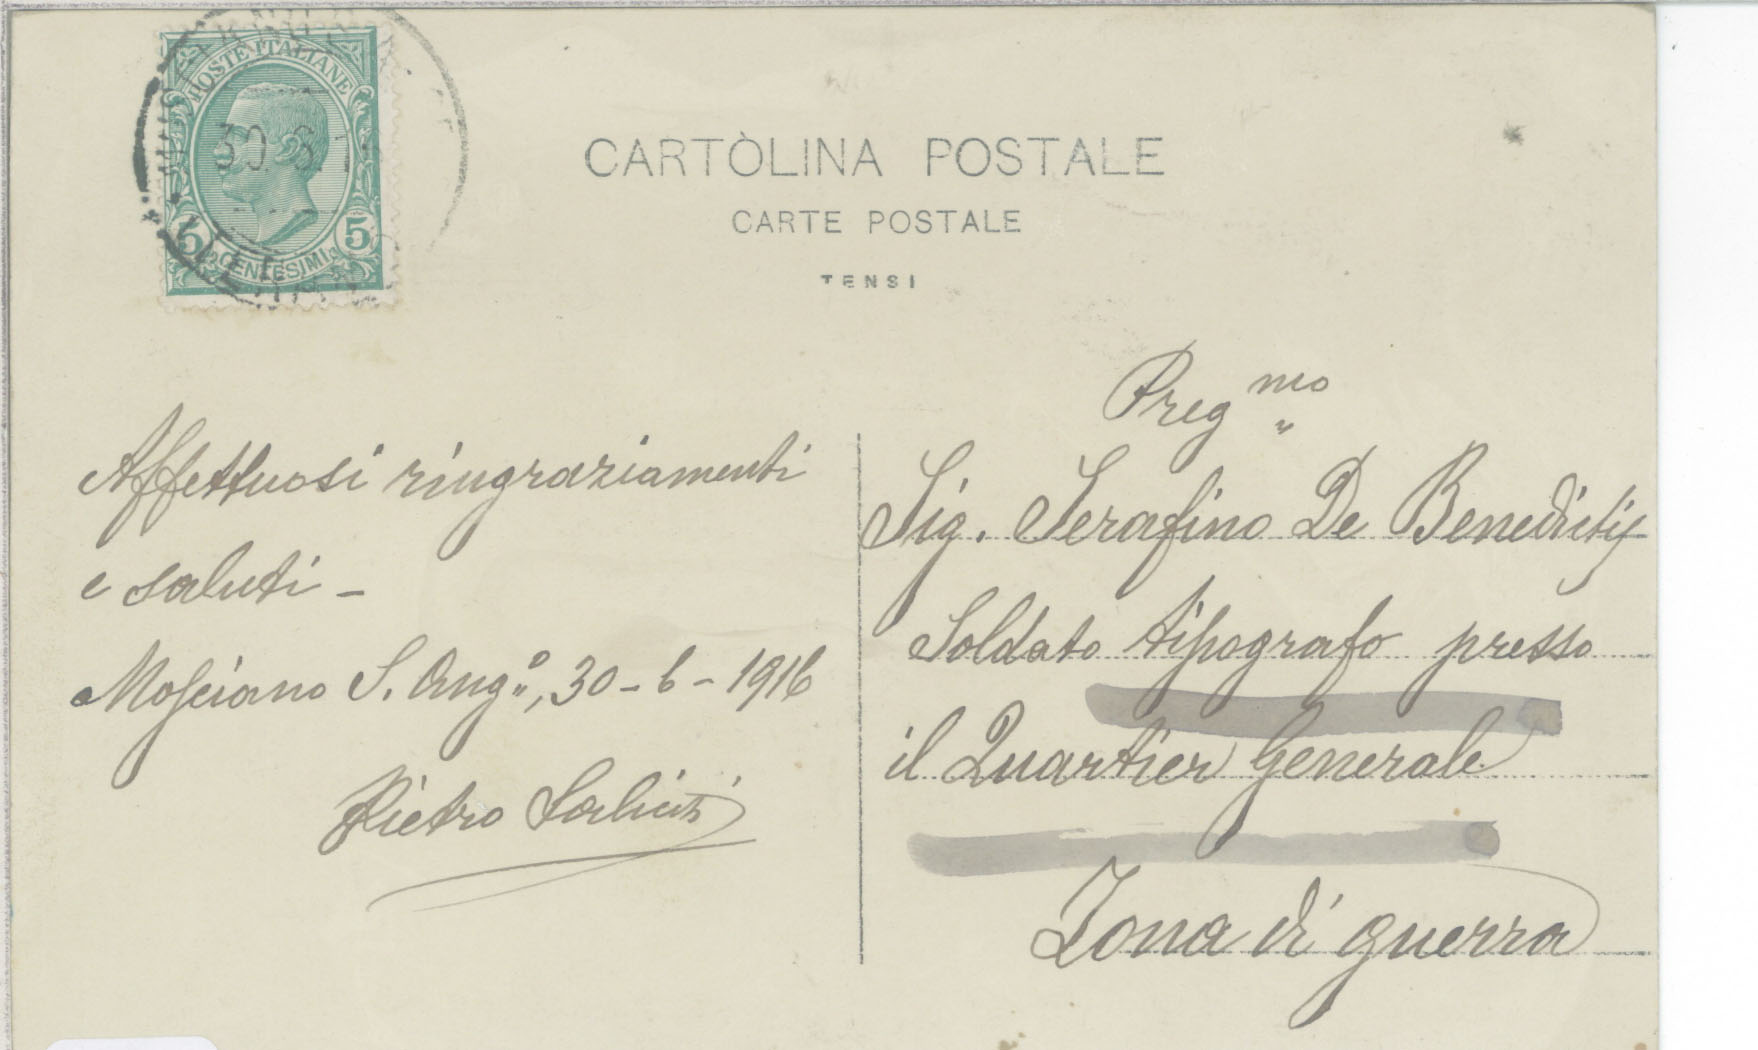 POSTE ITALIANE
30.6.1
5 5
CENTESIMI
CARTÒLINA POSTALE
CARTE POSTALE
TENSI
Affettuosi ringraziamenti
e saluti -
Mosciano S. Ang.º, 30-6-1916
Pietro
Preg.mo
Sig. Serafino De Benedictis
Soldato tipografo presso
il Quartier Generale
Zona di guerra